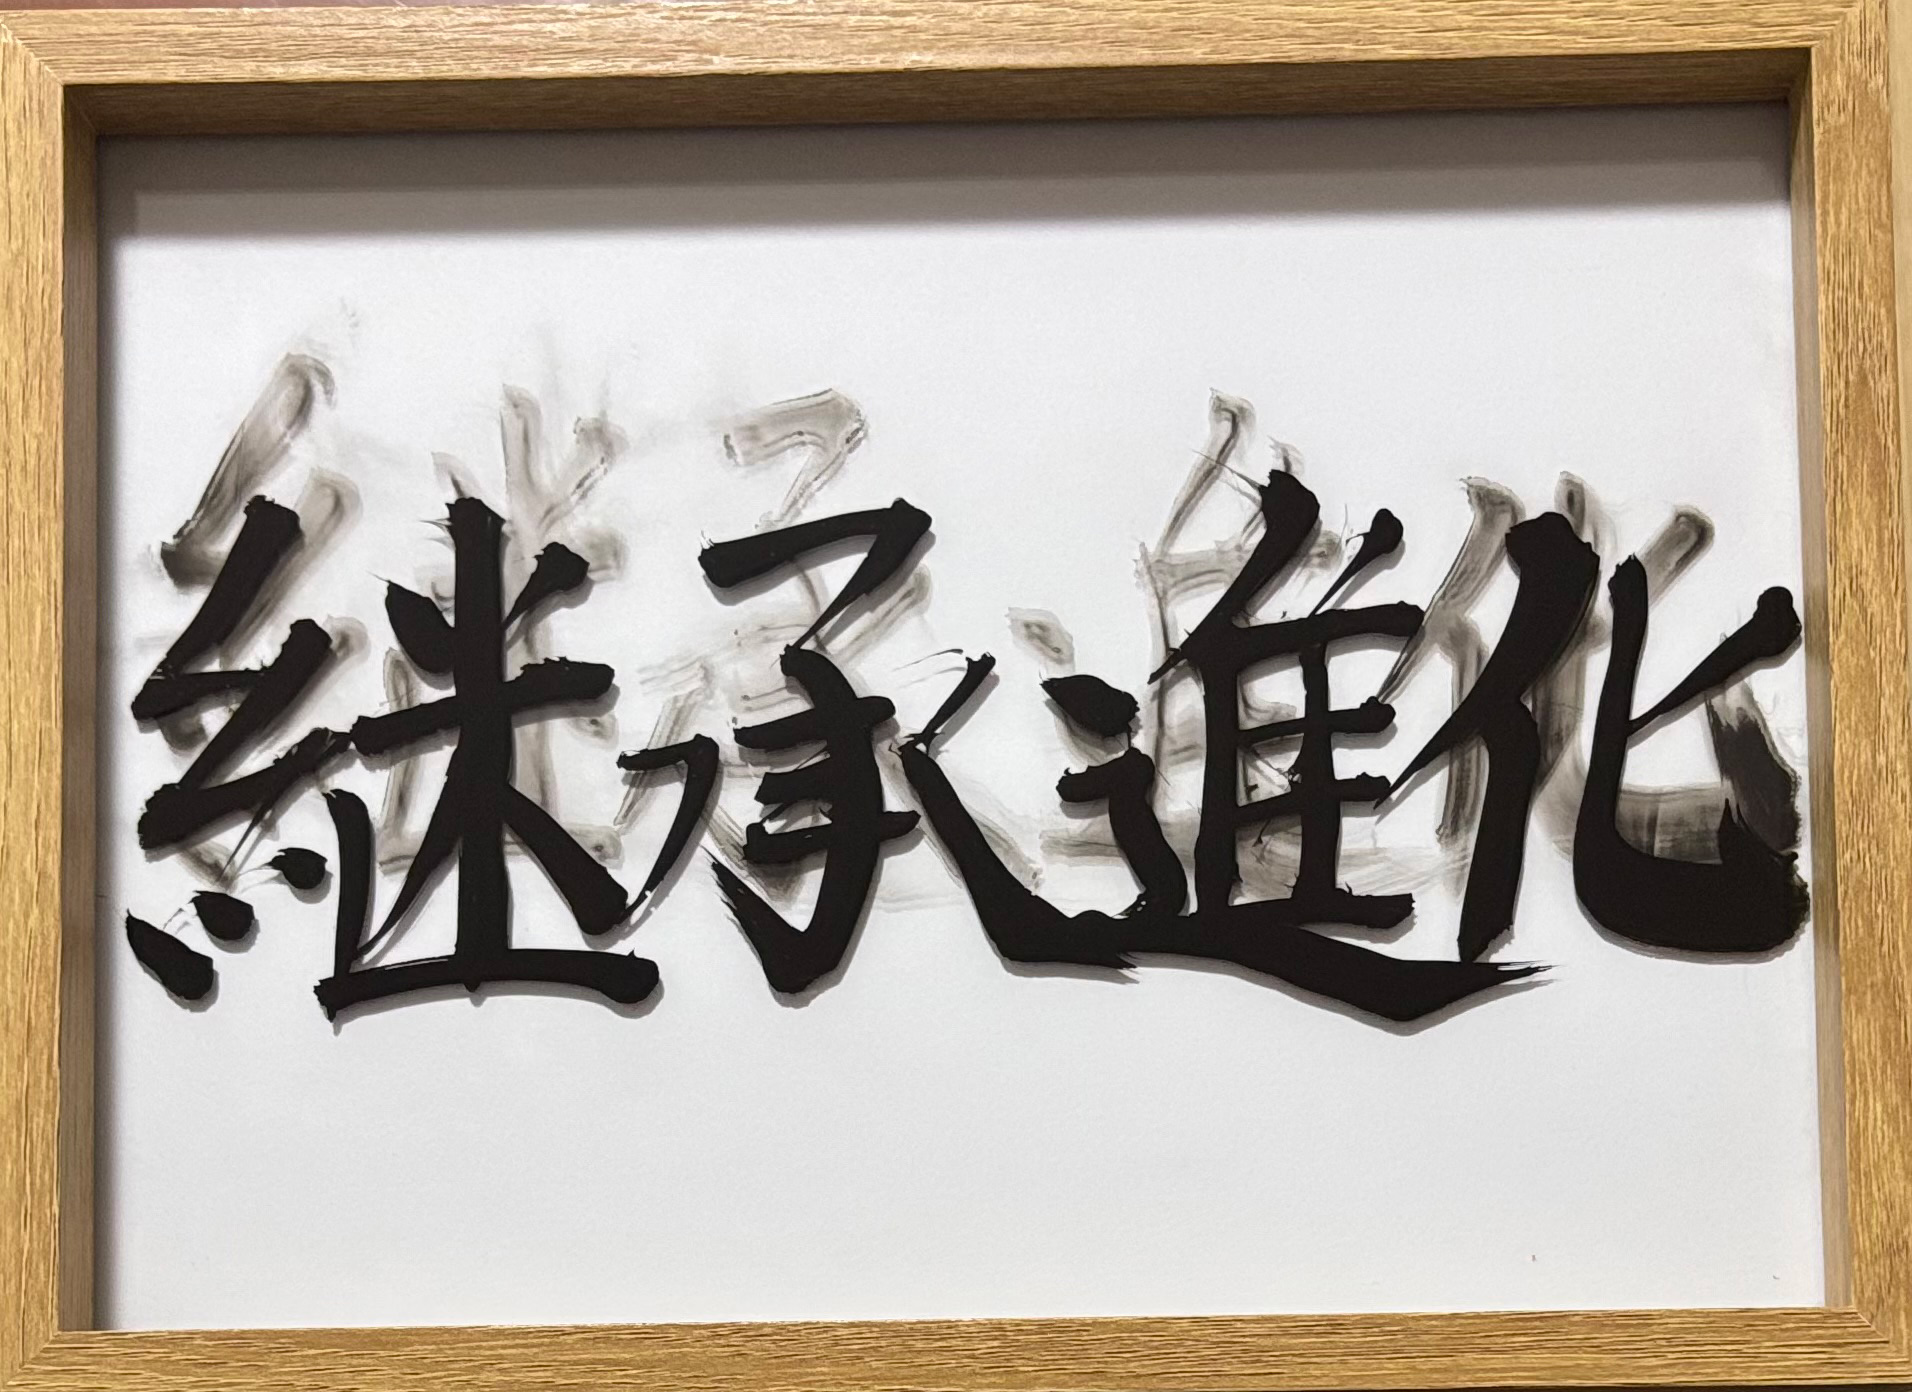 継承進化